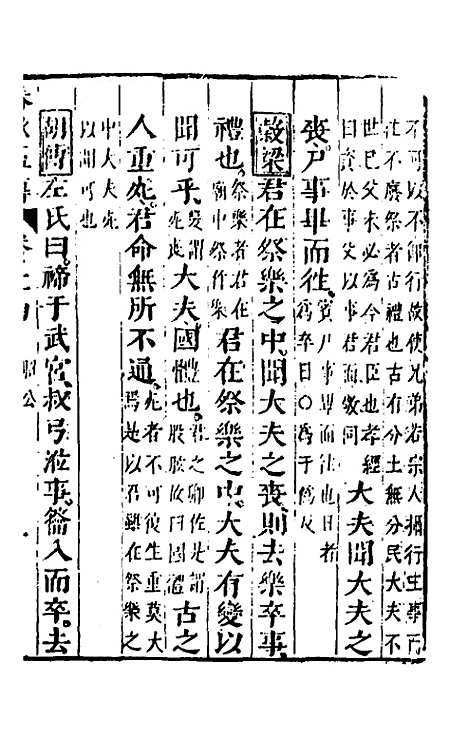 不可以不即行故使兄弟若宗人攝行主事而
往不廢祭者古禮也古有分土無分民大夫不
世已父未必為今君臣也孝經
曰資於事父以事君而敬同
大夫聞大夫之
喪尸事畢而往
賓尸事畢而往也日者
為卒日○為于偽反
穀梁君在祭樂之中聞大夫之喪則去樂卒事
禮也。
祭樂者君在
廟中祭作樂
君在祭樂之中大夫有變以
聞可乎
變謂
死喪
大夫國體也。
君之卿佐是謂
股肱故曰國體
古之
人重死君命無所不通
死者不可復生重莫大
焉是以君雖在祭樂之
中大夫死
以聞可也
胡傳左氏曰禘于武宮叔弓涖事籥入而卒。去
昭公